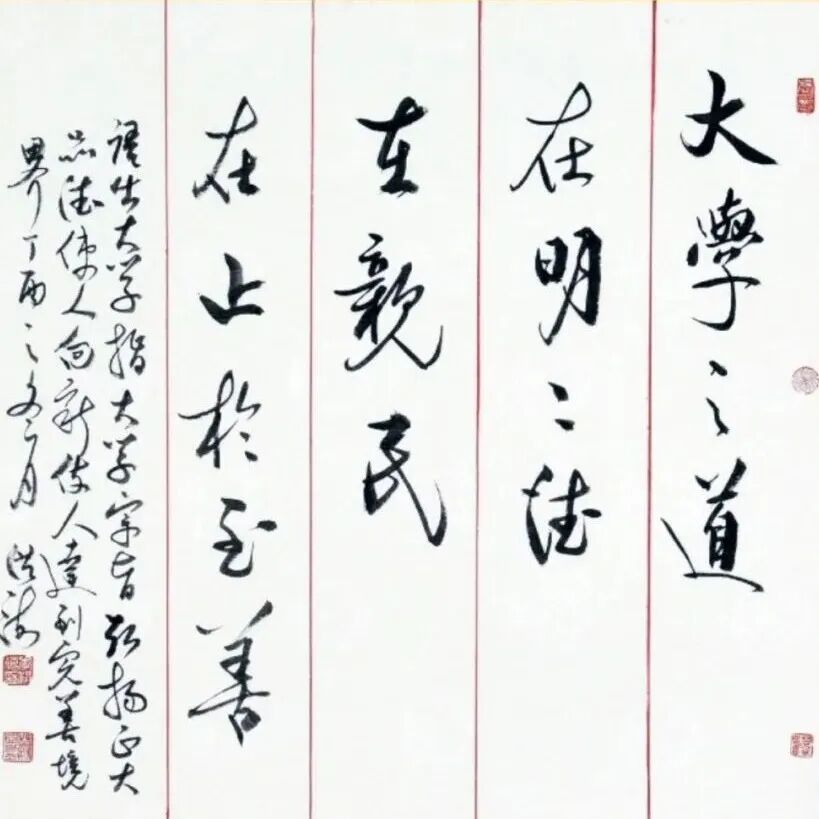 大學之道
在明〻德
在親民
在止於至善
語出大学指大学宗旨弘扬正大
品德使人向新使人達到完善境
界丁酉之月